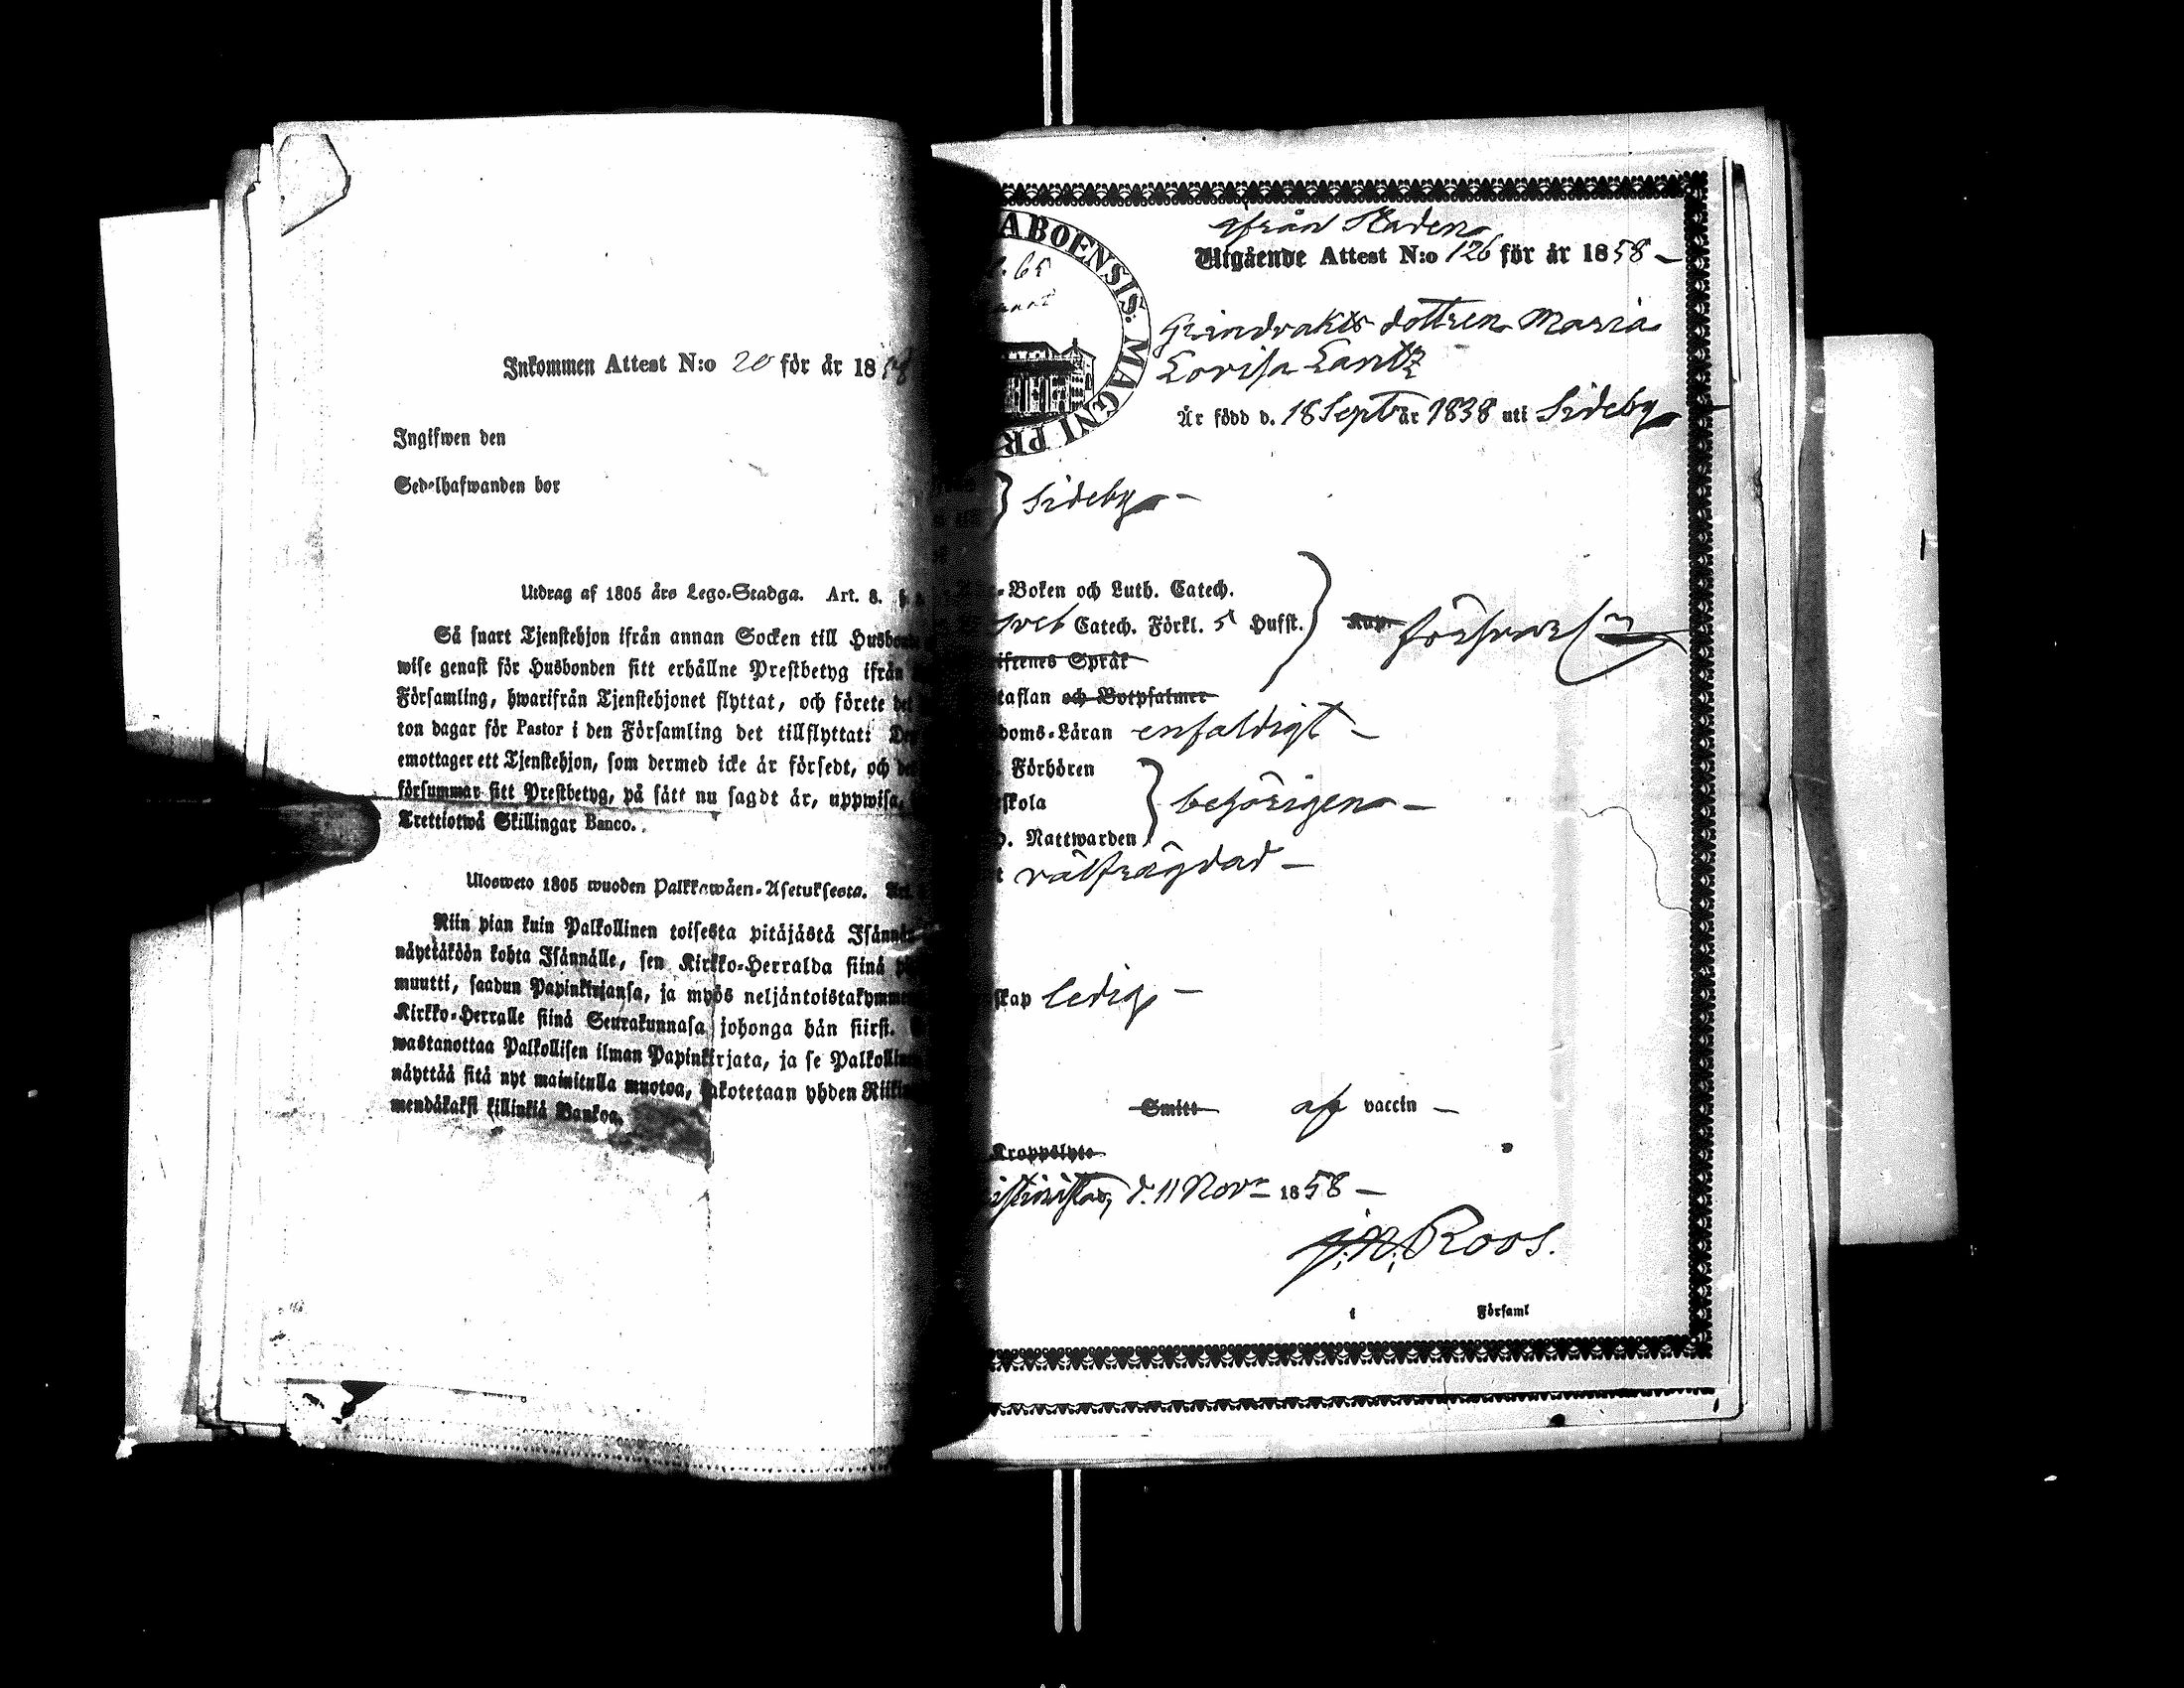 Inkommen Attest N:o 20 för år 1858
Ingifwen den
Sedelhafwanden bor
Utdrag af 1805 års Lego-Stadga. Art. 8. §
Så snart Tjenstehjon ifrån annan Socken till Husbonde
wise genast för Husbonden sitt erhållne Prestbetyg ifrån
Församling, hwarifrån Tjenstehjonet flyttat, och förete det
ton dagar för Pastor i den Församling det tillflyttat: Den
emottager ett Tjenstehjon, som dermed icke är försedt, och det
försummar sitt Prestbetyg, på sätt nu sagdt är, uppwisa,
Trettiotwå Skillingar Banco.
Ulosweto 1805 wuoden Palkkawäen-Asetuksesta. Art.
Niin pian kuin Palkollinen toisesta pitäjästä Isännän
näyttäköön kohta Isännälle, sen Kirkko-Herralda siinä
muutti, saadun Papinkirjansa, ja myös neljäntoistakymmen
Kirkko-Herralle siinä Seurakunnasa johonga hän siirst.
wastanottaa Palkollisen ilman Papinkirjata, ja se Palkollinen
näyttää sitä nyt mainitulla muotoa, sakotetaan yhden Riikin
mendäkaksi killinkiä Bankoa.
ABOENSIS. MAGNI PR
65
ifrån Staden
Utgående Attest N:o 126 för år 1858
Grindvakts dottren Maria
Lovisa Lantz
Är född d. 18 Sept år 1838 uti Sideby
Sideby
-Boken och Luth. Catech.
Sveb Catech. Förkl. 5 Hufst.
försvarl
iftenes Språk
taflan och Botpsalmer
doms-Läran enfaldigt
Förhören
skola
behörigen
Nattwarden
välfrägdad
skap ledig
Smitt af vaccin
Kroppslyte
istinestad, d. 11 Novr 1858
J. N. Roos.
i Församl